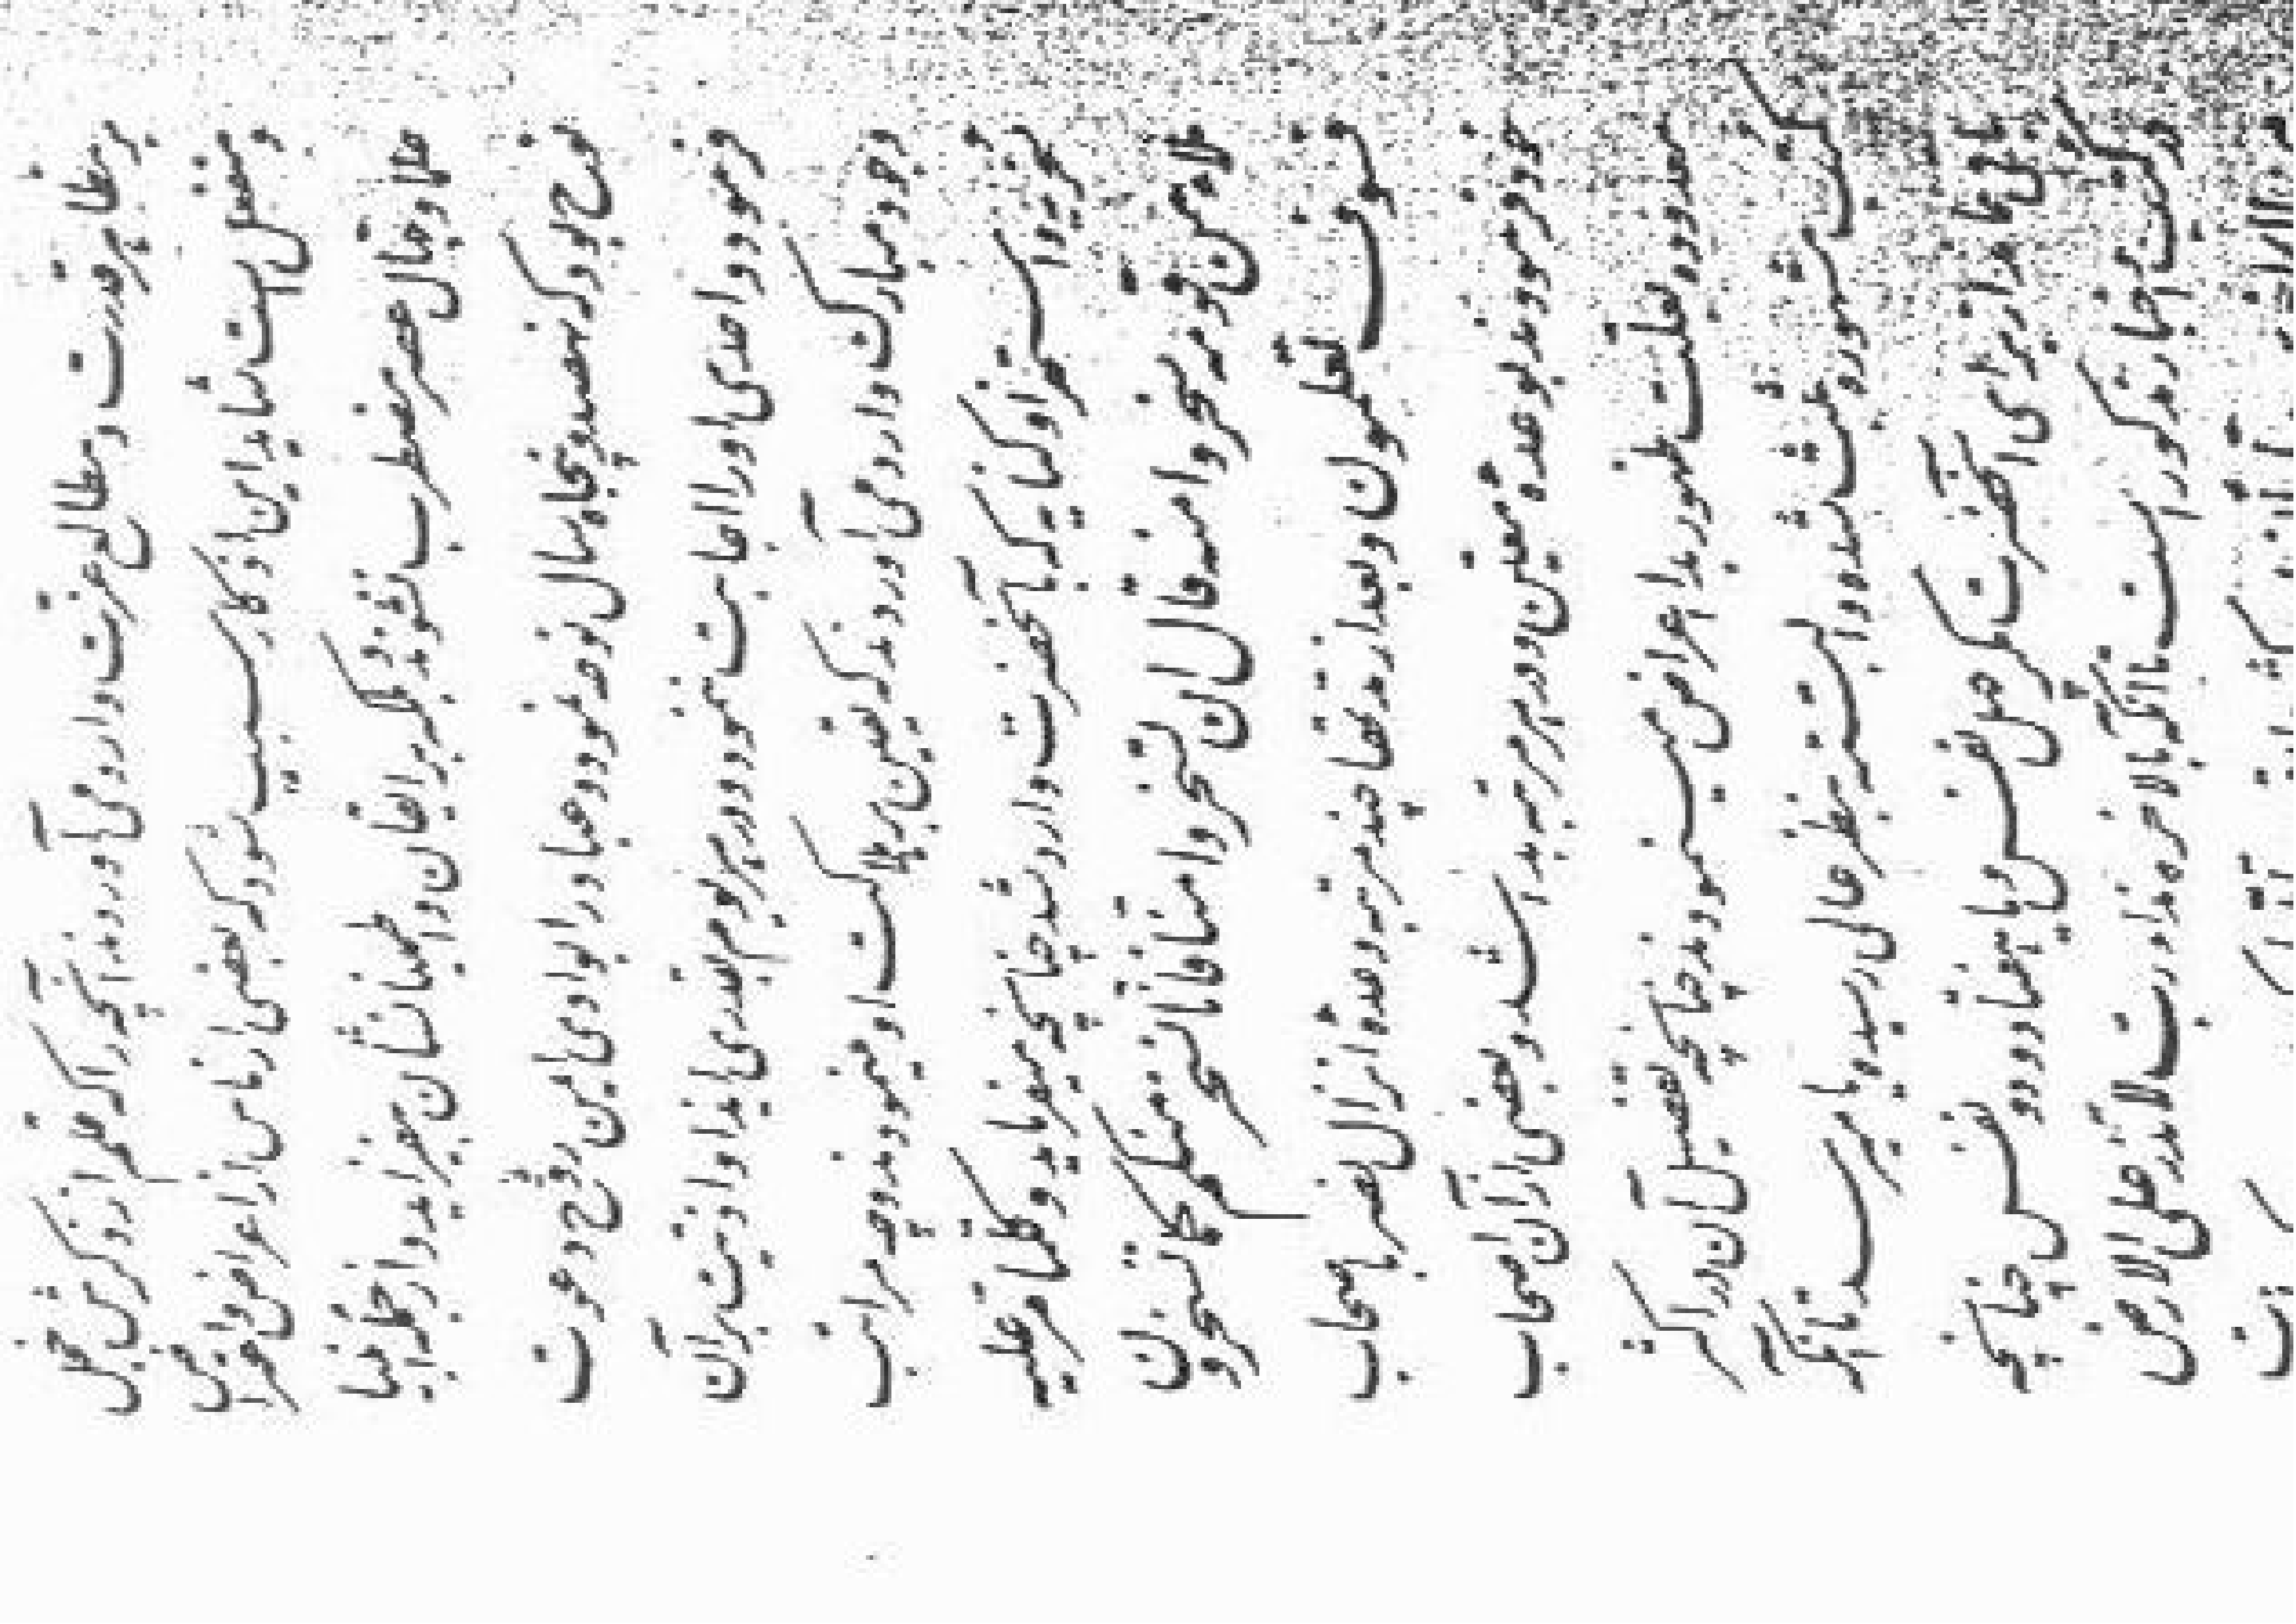 بر مظاهر قدرت و مطالع عزت وارد می آورند آنچه را که قلم از ذکرش خجل
و منفعل است شاید این اذکار سبب شود که بعضی از ناس از اعراض و اعتراض
علما و جهال عصر مضطرب نشوند و بلکه بر ایقان و اطمینانشان بیفزاید و از جمله انبیا
نوح بود که نهصد و پنجاه سال نوحه نمود و عباد را بوادی ایمن روح دعوت
فرمود و احدی او را اجابت ننمود و در هر یوم بقدری ایذا و اذیت بر آن
وجود مبارک وارد می آوردند که یقین بر هلاکت او مینمودند و چه مراتب
سخریه و استهزا و کنایه که بآنحضرت وارد شد چنانچه میفرماید و کلما مر علیه
ملاء من قومه سخروا منه قال ان تسخروا منا فانا نسخر منکم کما تسخرون
فسوف تعلمون و بعد از مدتها چند مرتبه وعده انزال نصر باصحاب
خود فرمودند بوعده معین و در هر مرتبه بدا شد و بعضی از آن اصحاب
معدوده بعلت ظهور بدا اعراض مینمودند چنانچه تفصیل آن در اکثر
کتب مشهوره ثبت شده و البته بنظر عالی رسیده و یا میرسد تا آنکه
باقی نماند از برای آنحضرت مگر چهل نفس و یا هفتاد و دو نفس چنانچه
در کتب و اخبار مذکور است تا آنکه بالاخره ندا رب لا تذر علی الارض